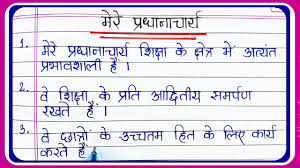 मेरे प्रधानाचार्य
1. मेरे प्रधानाचार्य शिक्षा के क्षेत्र में अत्यंत
प्रभावशाली हैं ।
2. वे शिक्षा के प्रति आद्वितीय समर्पण
रखते हैं ।
3. वे छात्रों के उच्चतम हित के लिए कार्य
करते हैं